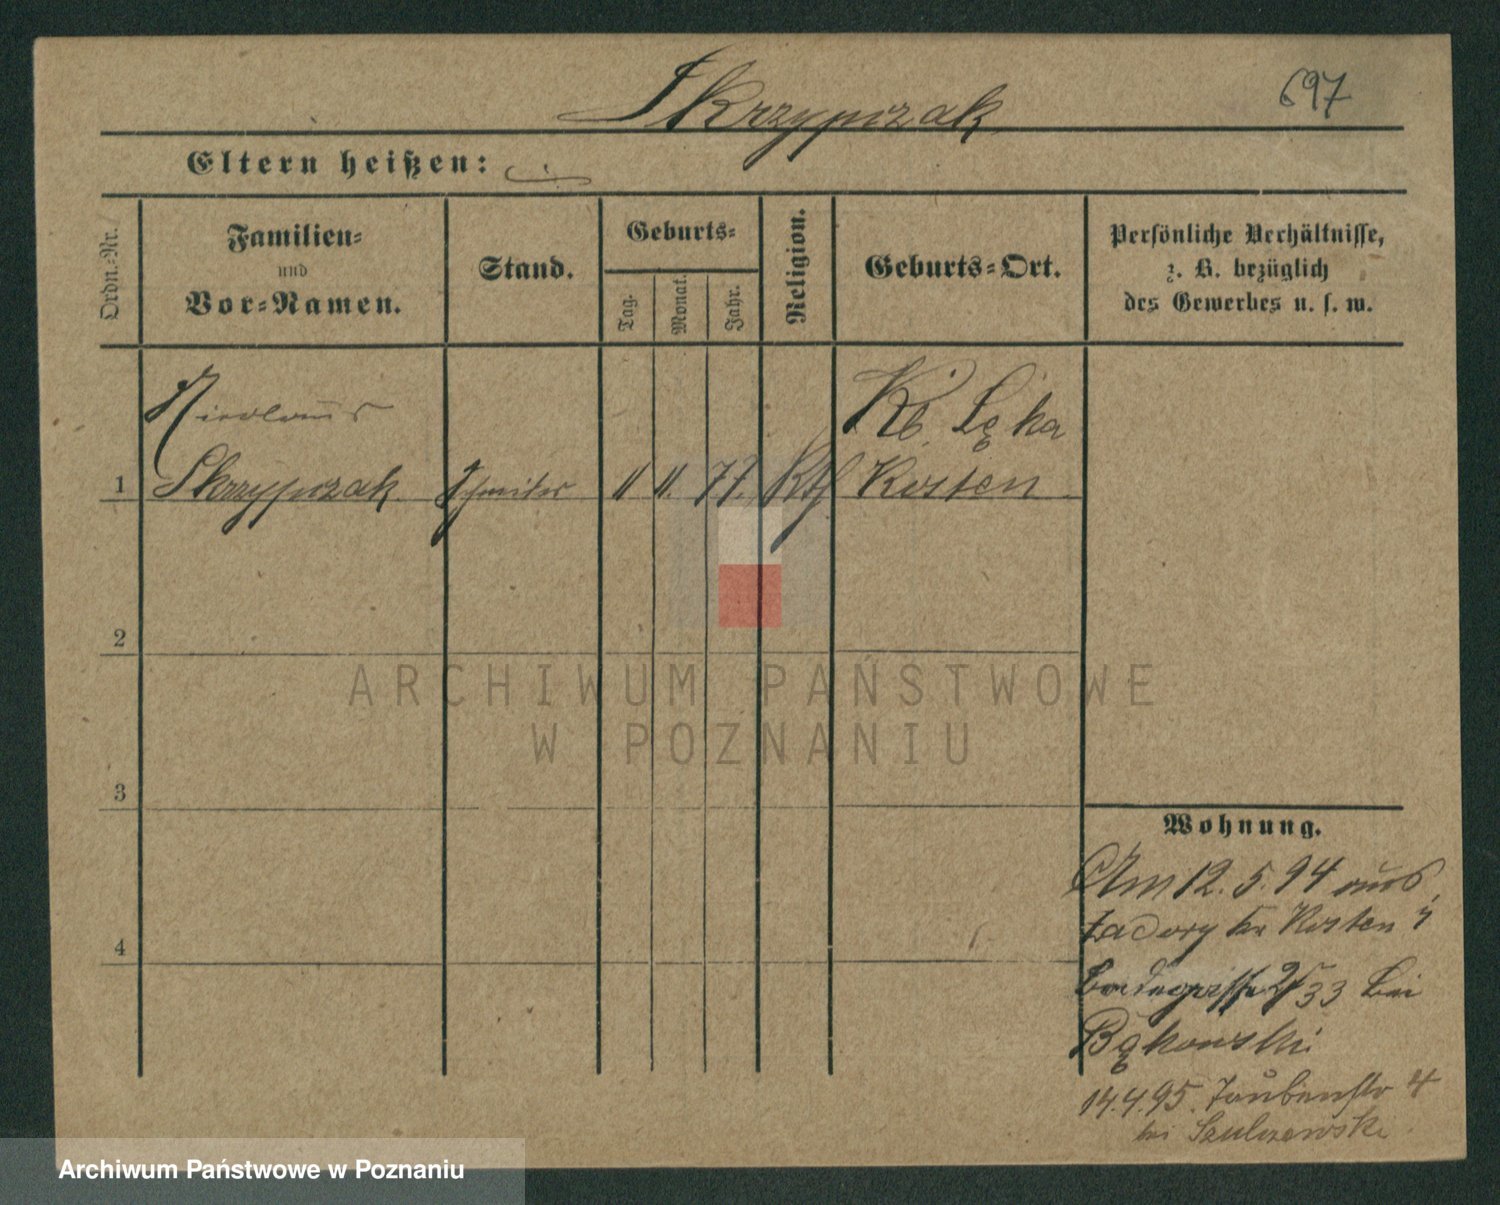 Skrzypczak
697
Eltern heißen:
Ordn.-Nr.
Familien-
und
Vor-Namen.
Stand.
Geburts-
Tag.
Monat.
Jahr.
Religion.
Geburts-Ort.
Persönliche Verhältnisse,
z. B. bezüglich
des Gewerbes u. s. w.
Nicolaus
Kl. Łęka
1 Skrzypczak 11 11. 77. Kth Kosten
2
3
4
ARCHIWUM PAŃSTWOWE
W POZNANIU
Wohnung.
Am 12. 5. 94 aus
Zadory Kr Kosten
33 bei
Bąkowski
14.4.95. Taubenstr 4
bei Szulczewski
Archiwum Państwowe w Poznaniu